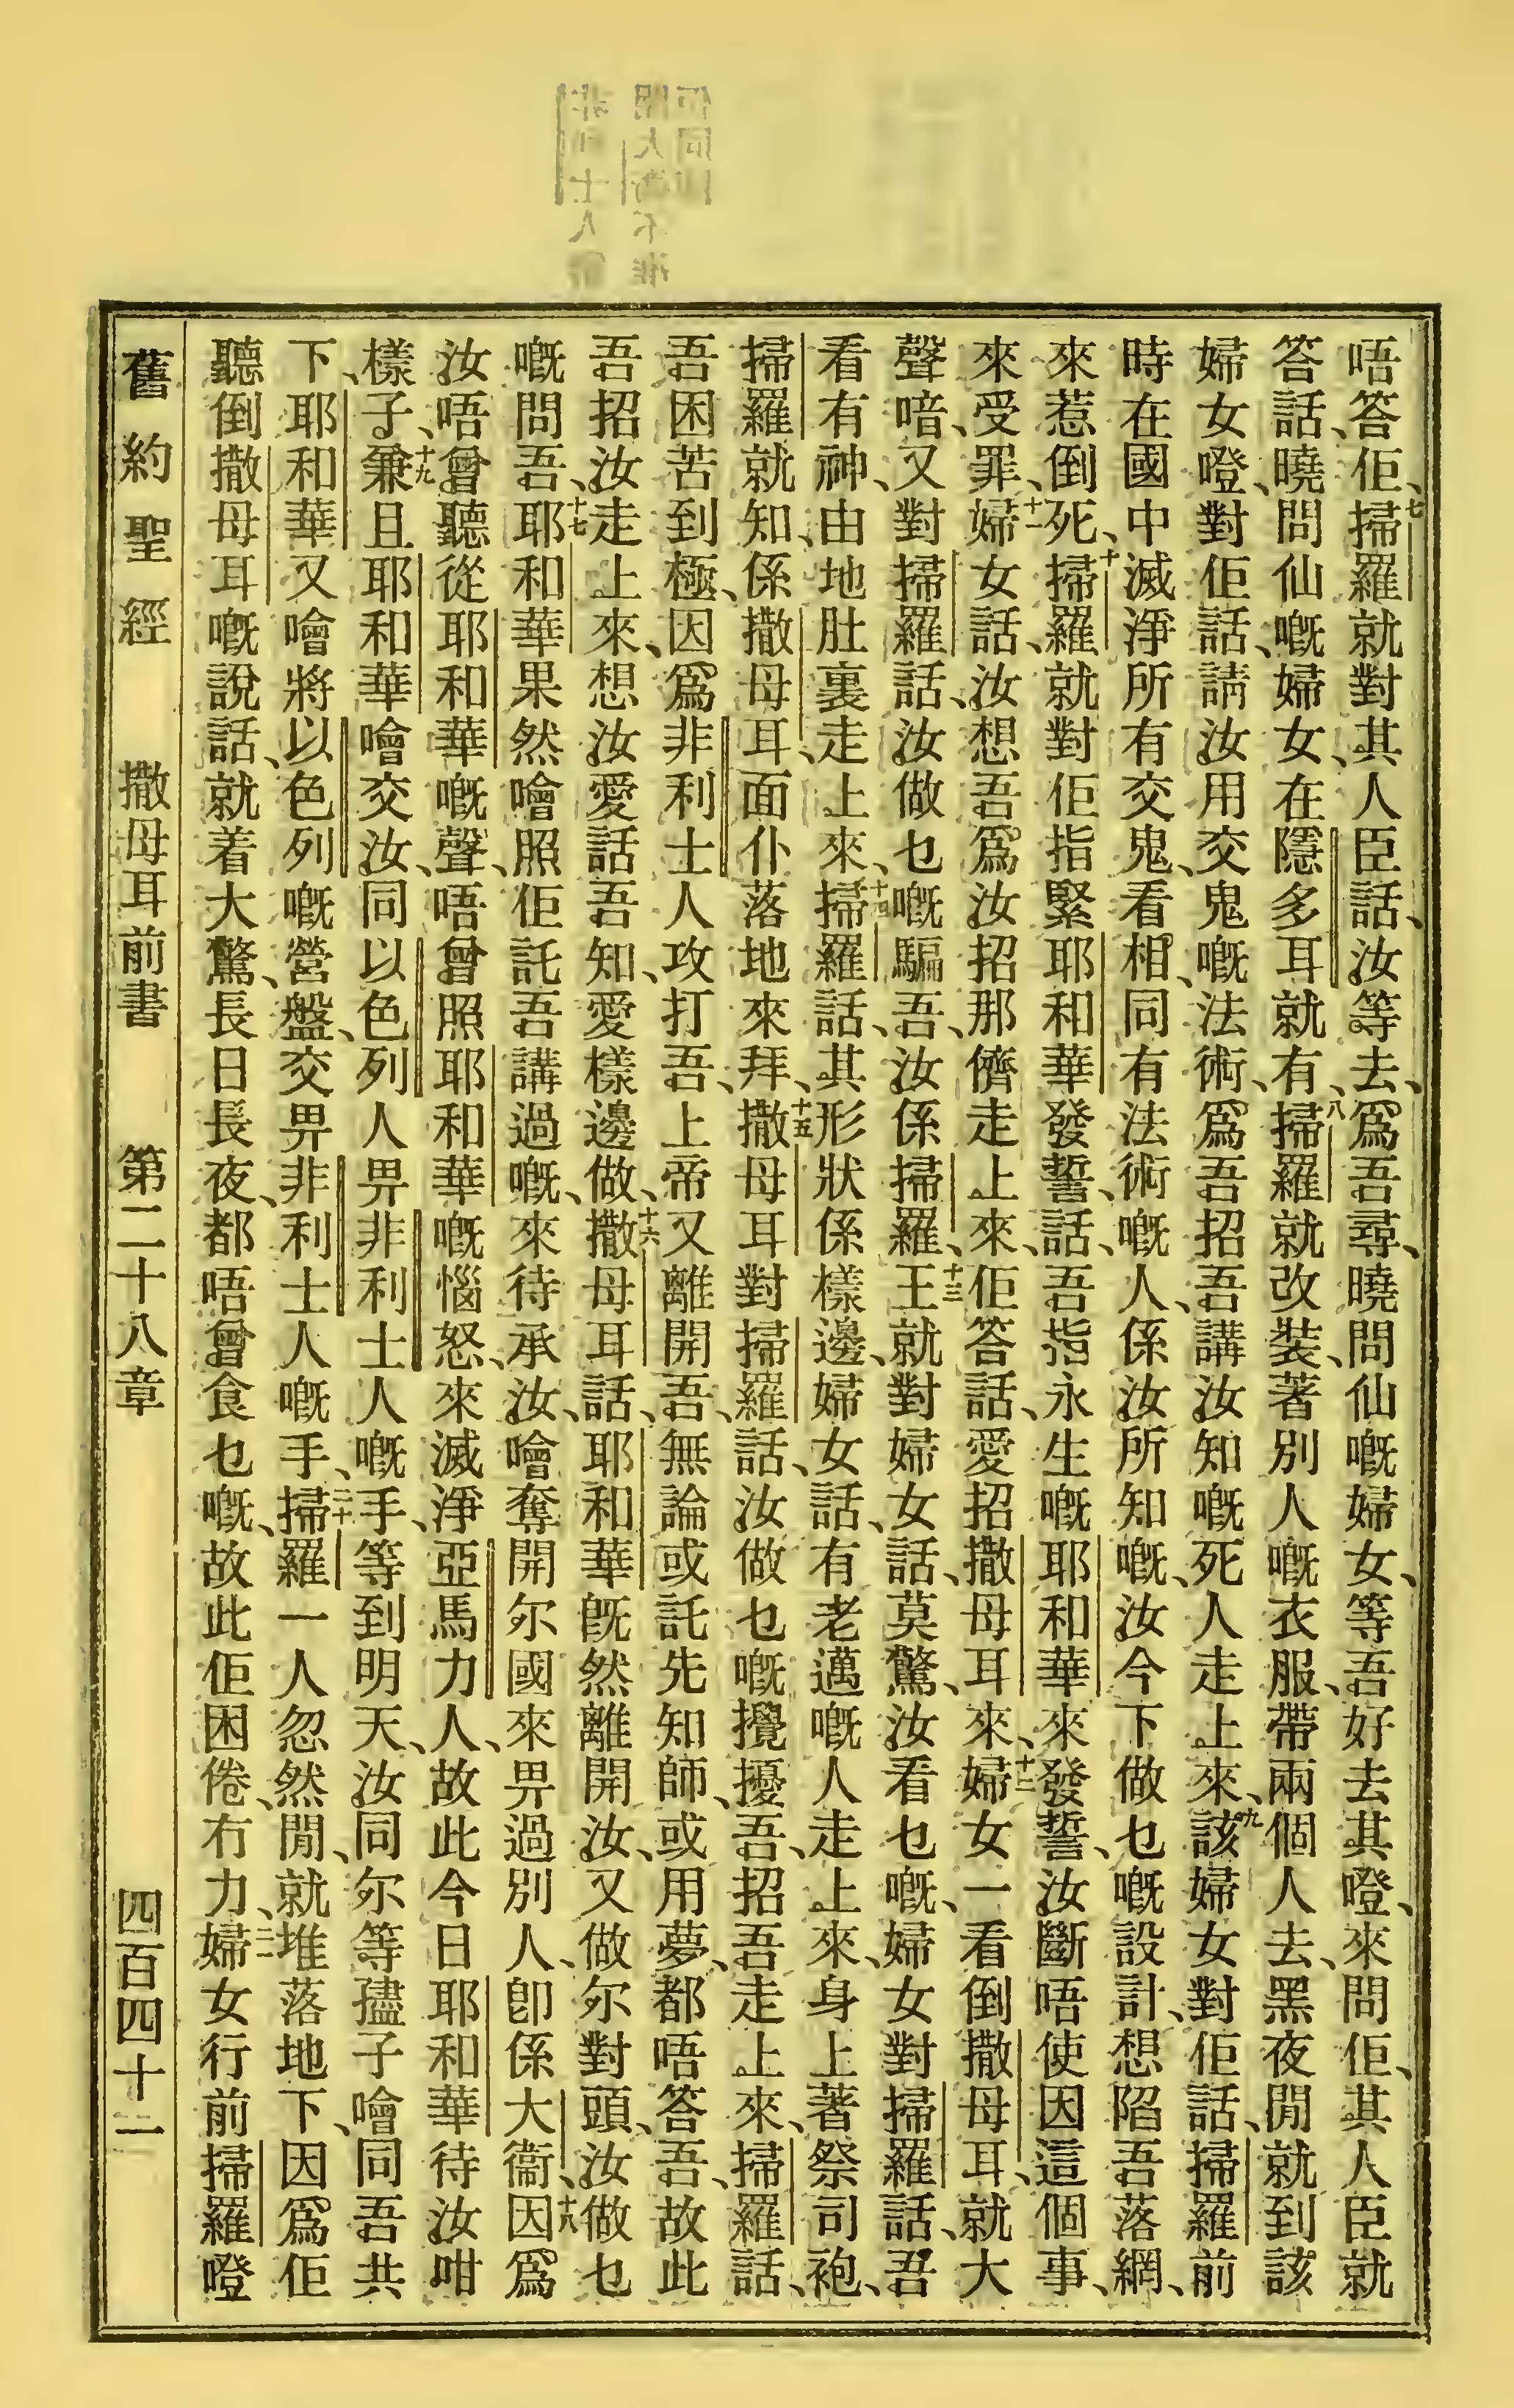 唔答佢、七掃羅就對其人臣話、汝等去、爲吾尋、曉問仙嘅婦女、等吾好去其嶝、來問佢、其人臣就
答話、曉問仙嘅婦女、在隱多耳就有、八掃羅就改裝、著別人嘅衣服、帶兩個人去、黑夜閒就到該
婦女嶝、對佢話、請汝用交鬼嘅法術、爲吾招吾講汝知嘅死人走上來、九該婦女對佢話、掃羅前
時在國中滅淨所有交鬼、看相、同有法術嘅人、係汝所知嘅、汝今下做乜嘅設計、想陷吾落網、
來惹倒死、十掃羅就對佢指緊耶和華發誓、話、吾指永生嘅耶和華來發誓、汝斷唔使因這個事、
來受罪、十一婦女話、汝想吾爲汝招那儕走上來、佢答話、愛招撒母耳來、十二婦女一看倒撒母耳、就大
聲喑、又對掃羅話、汝做乜嘅騙吾、汝係掃羅、十三王就對婦女話、莫驚、汝看乜嘅、婦女對掃羅話、吾
看有神、由地肚裏走上來、十四掃羅話、其形狀係樣邊、婦女話、有老邁嘅人走上來、身上著祭司袍、
掃羅就知、係撒母耳、面仆落地來拜、十五撒母耳對掃羅話、汝做乜嘅攪擾吾、招吾走上來、掃羅話、
吾困苦到極、因爲非利士人攻打吾、上帝又離開吾、無論或託先知師、或用夢、都唔答吾、故此
吾招汝走上來、想汝愛話吾知、愛樣邊做、十六撒母耳話、耶和華旣然離開汝、又做尔對頭、汝做乜
嘅問吾、十七耶和華果然噲照佢託吾講過嘅、來待承汝、噲奪開尔國來畀過別人、卽係大衞、十八因爲
汝唔曾聽從耶和華嘅聲、唔曾照耶和華嘅惱怒、來滅淨亞馬力人、故此今日耶和華待汝咁
樣子、十九兼且耶和華噲交汝、同以色列人畀非利士人嘅手、等到明天、汝同尔等孻子噲同吾共
下、耶和華又噲將以色列嘅營盤、交畀非利士人嘅手、二十掃羅一人忽然閒、就堆落地下、因爲佢
聽倒撒母耳嘅說話、就着大驚、長日長夜、都唔曾食乜嘅、故此佢困倦冇力、二一婦女行前掃羅嶝
舊約聖經 撒母耳前書 第二十八章 四百四十二